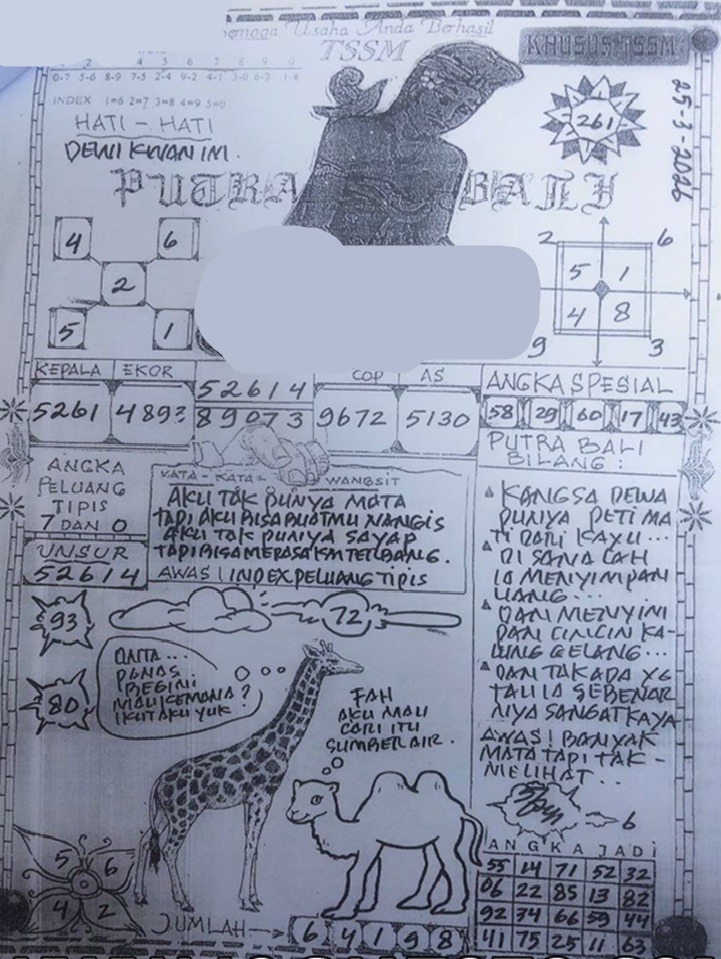 Semoga Usaha Anda Berhasil
TSSM
KHUSUS TSSM
2 4 5 6 7 8 9 0
0-7 5-6 8-9 7-5 2-4 9-2 4-1 3-0 6-3 1-8
INDEX 1=6 2=7 3=8 4=9 5=0
HATI - HATI
DEWI KWAN IM.
261
25-3-2026
PUTRA BALI
4 6
2
5 1
2 6
5 1
4 8
9 3
KEPALA EKOR
5261 489?
52614
89073
COP AS
9672 5130
ANGKA SPESIAL
58 29 60 17 43
ANGKA
PELUANG
TIPIS
7 DAN 0
UNSUR
52614
KATA - KATA = WANGSIT
AKU TAK PUNYA MATA
TAPI AKU BISA BUATMU NANGIS
AKU TAK PUNYA SAYAP
TAPI BISA MERASAKAN TERBANG.
AWAS ! INDEX PELUANG TIPIS
PUTRA BALI
BILANG :
KANGSA DEWA
PUNYA PETI MA
TI DARI KAYU...
DI SANA LAH
IA MENYIMPAN
UANG....
DAN MENYIM
PAN CINCIN KA-
LUNG GELANG...
DAN TAK ADA YG
TAU IA SEBENAR
NYA SANGAT KAYA
AWAS ! BANYAK
MATA TAPI TAK -
MELIHAT...
6
93
72
80
ONTA...
PANAS
BEGINI
MAU KEMANA ?
IKUT AKU YUK
FAH
AKU MAU
CARI ITU
SUMBER AIR.
5 6
4 2
JUMLAH
6 4 1 9 8
ANGKA JADI
55 14 71 52 32
06 22 85 13 82
92 34 66 59 44
41 75 25 11 63